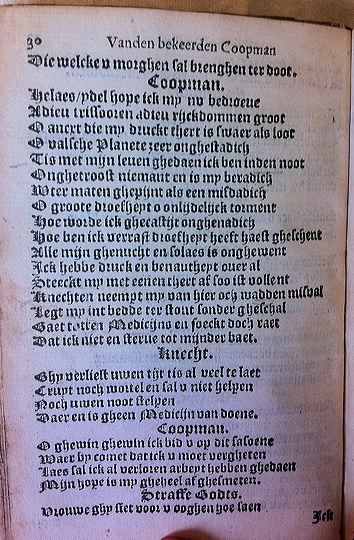 30 Vanden bekeerden Coopman
Die welcke v morghen sal brenghen ter doot.
Coopman.
Helaes/ydel hope ick my nv bedroeve
Adieu trissooren adieu rijckdommen groot
O ancxt die my druckt thert is swaer als loot
O valsche Planete zeer onghestadich
Tis met mijn leven ghedaen ick ben inden noot
Onghetroost niemant en is my beradich
Wter maten ghepijnt als een misdadich
O groote droefheyt o onlijdelijck torment
Hoe worde ick ghecastijt onghenadich
Hoe ben ick verrast droefheyt heeft haest gheschent
Alle mijn ghenucht en solaes is onghewent
Ick hebbe druck en benautheyt over al
Steeckt my met eenen thert af soo ist vollent
Knechten neempt my van hier och wadden misval
Legt my int bedde ter stont sonder gheschal
Gaet totten Medicijns en soeckt doch raet
Dat ick niet en sterue tot mijnder baet.
Knecht.
Ghy verliest uwen tijt tis al veel te laet
Cruyt noch wortel en sal v niet helpen
Noch uwen noot stelpen
Daer en is gheen Medicijn van doene.
Coopman.
O ghewin ghewin ick bid v op dit saisoene
Waer by comet dat ick v moet vergheten
Laes sal ick al verloren arbeyt hebben ghedaen
Mijn hope is my gheheel af ghesmeten.
Straffe Godts.
Vrouwe ghy siet voor v ooghen hoe saen
Ick